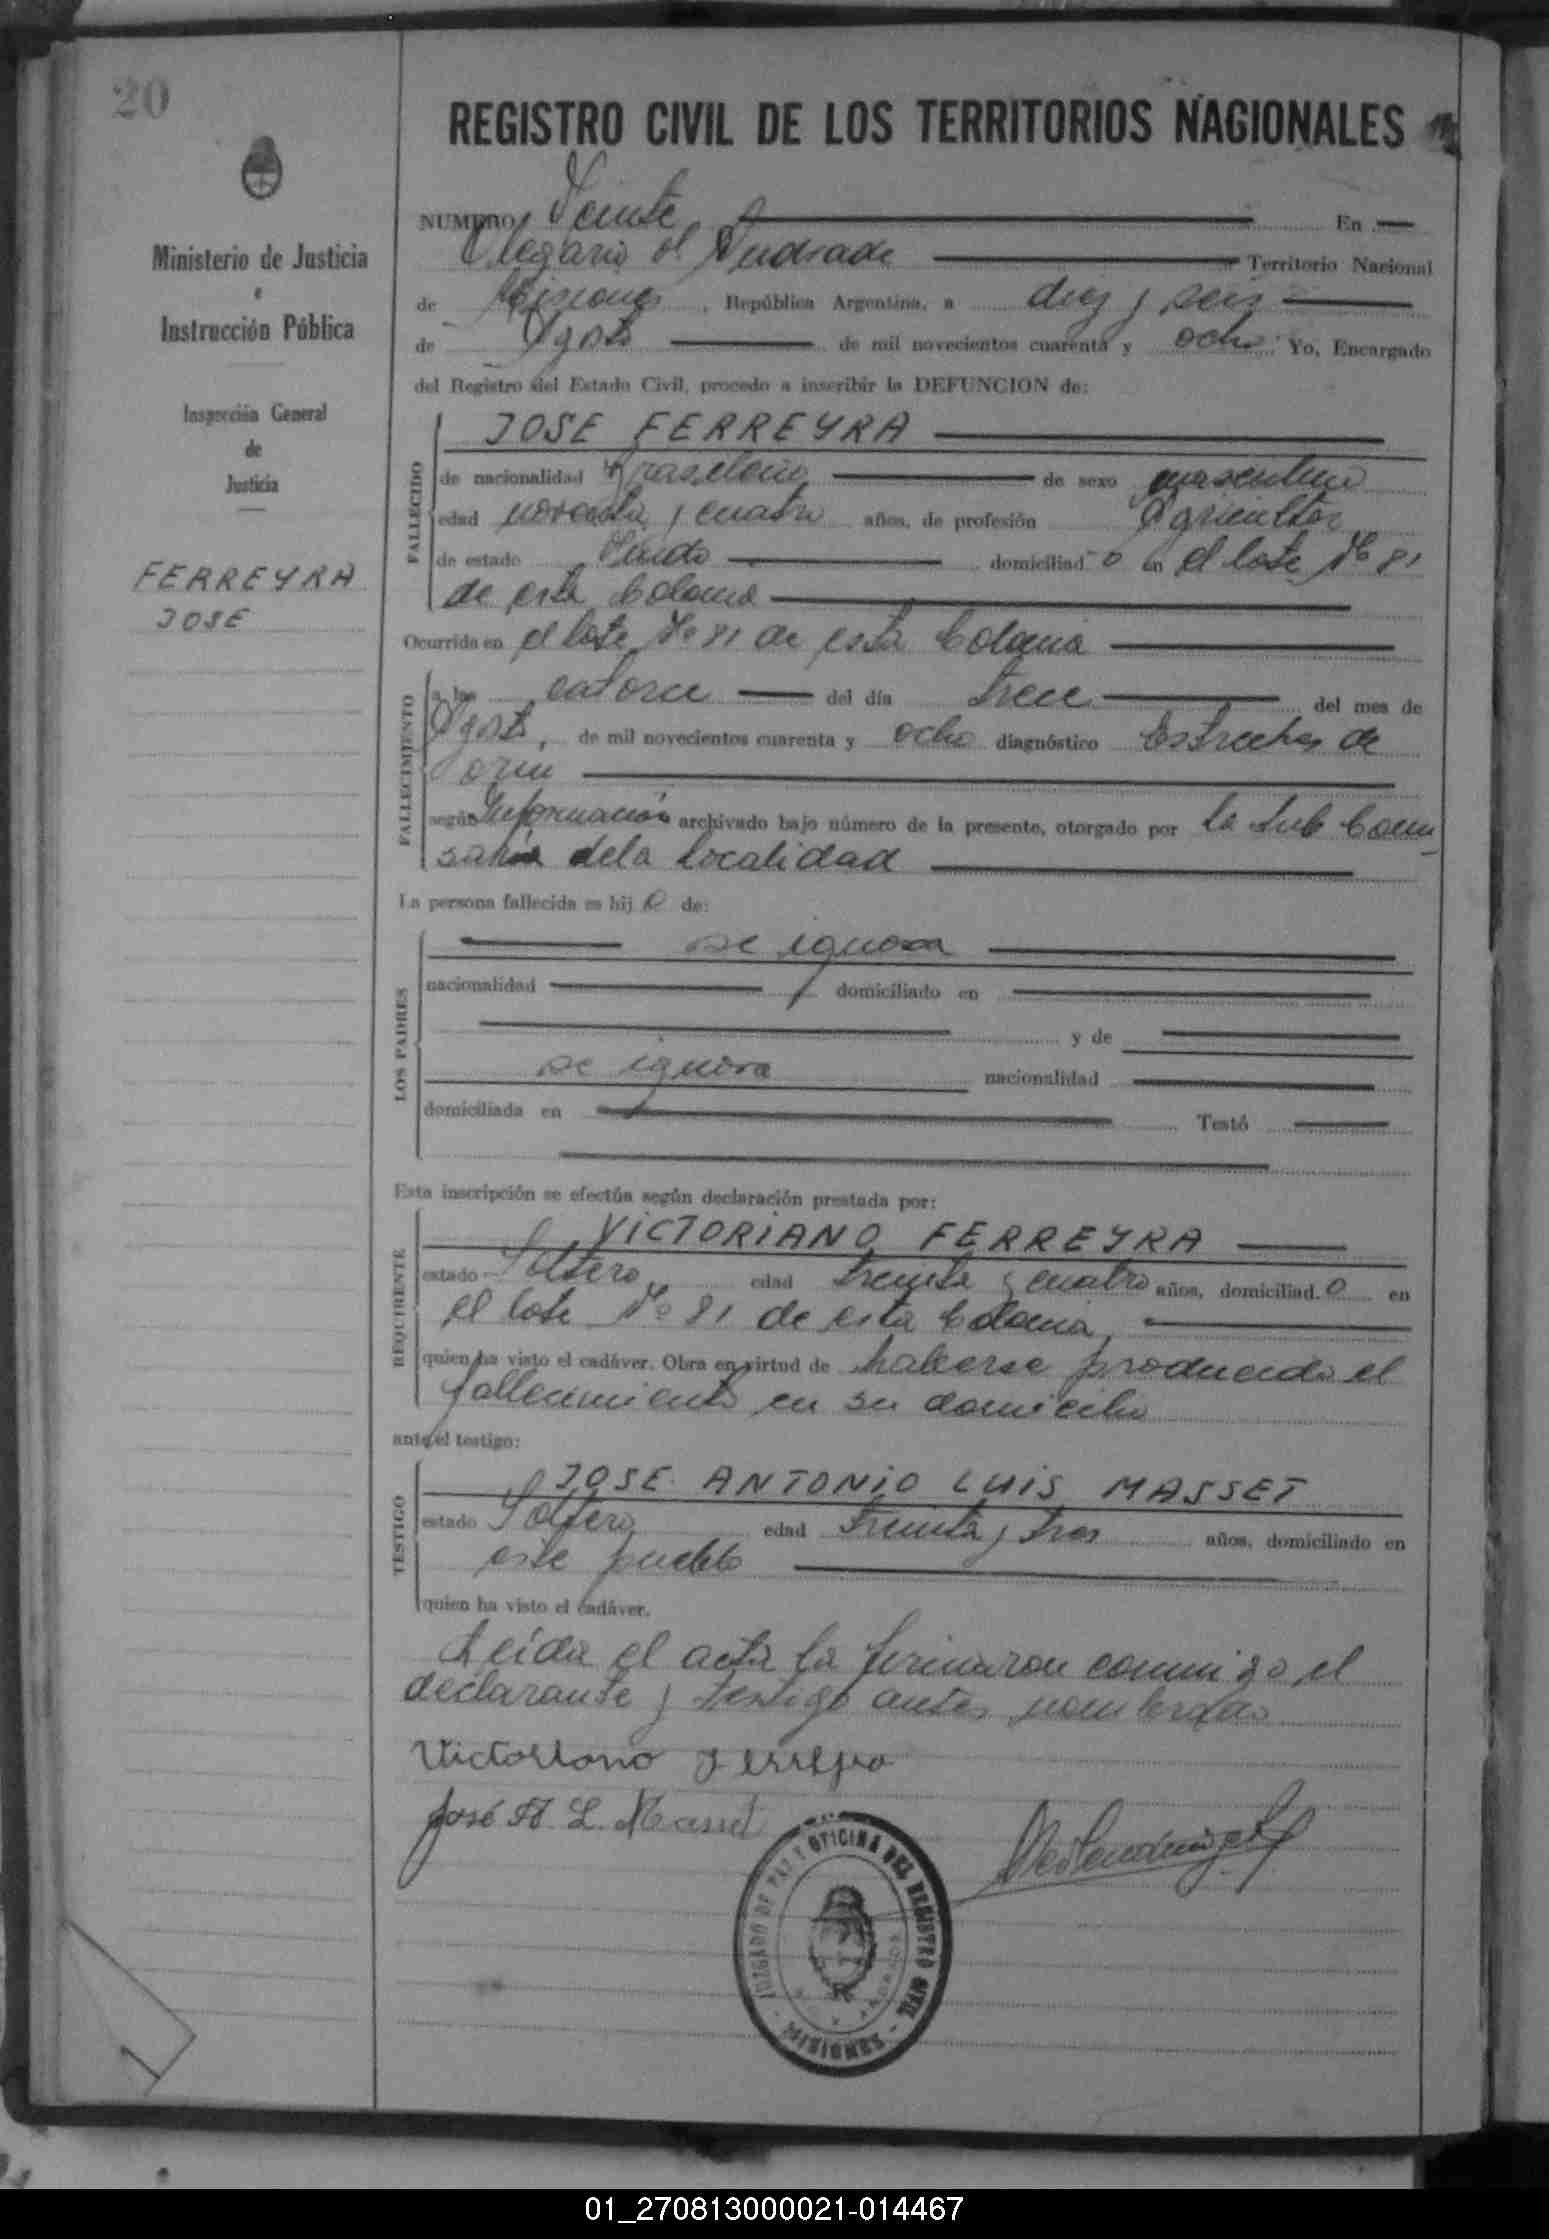 20
REGISTRO CIVIL DE LOS TERRITORIOS NACIONALES
Ministerio de Justicia
e
Instrucción Pública
Inspección General
de
Justicia
FERREYRA
JOSE
NUMERO Veinte En
Olegario V Andrade Territorio Nacional
de Misiones, República Argentina, a diez y seis
de Agosto de mil novecientos cuarenta y ocho Yo, Encargado
del Registro del Estado Civil, procedo a inscribir la DEFUNCION de:
FALLECIDO
JOSE FERREYRA
de nacionalidad Brasileño de sexo masculino
edad noventa y cuatro años, de profesión Agricultor
de estado Viudo domiciliad o en el lote No 81
de esta Colonia
Ocurrida en el lote No 81 de esta Colonia
FALLECIMIENTO
a las catorce del día trece del mes de
Agosto, de mil novecientos cuarenta y ocho diagnóstico Estrechez de
según Información archivado bajo número de la presente, otorgado por la Sub Comi
saria de la localidad
La persona fallecida es hij o de:
LOS PADRES
se ignora
nacionalidad domiciliado en
y de
se ignora nacionalidad
domiciliada en Testó
Esta inscripción se efectúa según declaración prestada por:
REQUIRENTE
VICTORIANO FERREYRA
estado Soltero edad treinta y cuatro años, domiciliad o en
el lote No 81 de esta Colonia,
quien ha visto el cadáver. Obra en virtud de haberse producido el
fallecimiento en su domicilio
ante el testigo:
TESTIGO
JOSE ANTONIO LUIS MASSET
estado Soltero edad treinta y tres años, domiciliado en
este pueblo
quien ha visto el cadáver.
Leida el acta la firmaron conmigo el
declarante y testigo antes nombrados
Victoriano Ferreyra
José A. L. Masset
JUZGADO DE PAZ Y OFICINA DEL REGISTRO CIVIL
- MISIONES -
01_270813000021-014467